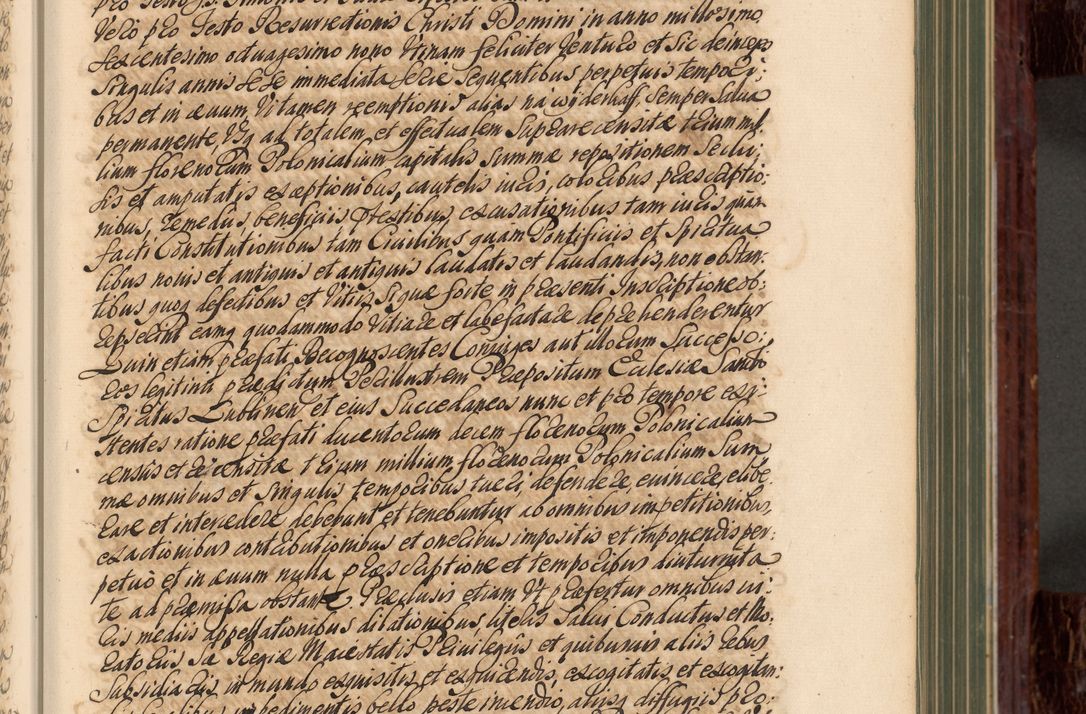 Vero pro Festo Resurrectionis Christi Domini in anno millesimo
Sexcentesimo octuagesimo nono Utinam feliciter Venturo et Sic deinceps
Singulis annis Sese immediata Serie Sequentibus perpetuis tempori:
bus et in ævum, Vitamen reemptionis alias na wyderkaff, Semper Salva
permanente, Usq ad totalem et effectualem Supra recensitæ trium mil:
lium florenorum Polonicalium Capitalis Summæ repositionem Seclu:
sis et amputatis exceptionibus, cautelis iuris, coloribus præscriptio:
nibus, remediis, beneficiis præstibus, excusationibus tam iuris quam
facti Constitutionibus tam Civilibus quam Pontificiis et Spiritua
libus novis et antiquis et antiquis laudatis et laudandis, non obstan:
tibus quoq defectibus et Vitiis Siquæ forte in præsenti Inscriptione ob:
repserint eamq quodammodo Vitiare et labefactare deprehenderentur
Quin etiam præfati Recognoscentes Coniuges aut illorum Successo:
res legitimi prædictum Perillustrem Præpositum Ecclesiæ Sancti
Spiritus Lublinen et eius Succedaneos nunc et pro tempore exis:
stentes ratione præfati ducentorum decem florenorum Polonicalium
census et recensitæ trium millium florenorum Polonicalium Sum
mæ omnibus et Singulis temporibus tueri, defendere, evincere, elibe
rare et intercedere debebunt et tenebuntur ab omnibus impetitionibus,
exactionibus contributionibus et oneribus impositis et imponendis per:
petuo et in ævum nulla præscriptione et temporibus diuturnita
te ad præmissa obstante, Præclusis etiam Ut præfertur omnibus iu:
ris mediis appellationibus dilationibus literis Salvi Conductus et Mo:
ratoriis Sæ Regiæ Maiestatis Privilegiis et quibusvis aliis rebus
Subsidiariis in mundo exquisitis et exquirendis, excogitatis et excogitan:
impedimentis bello peste incendio, aliisq diffugiis pro: